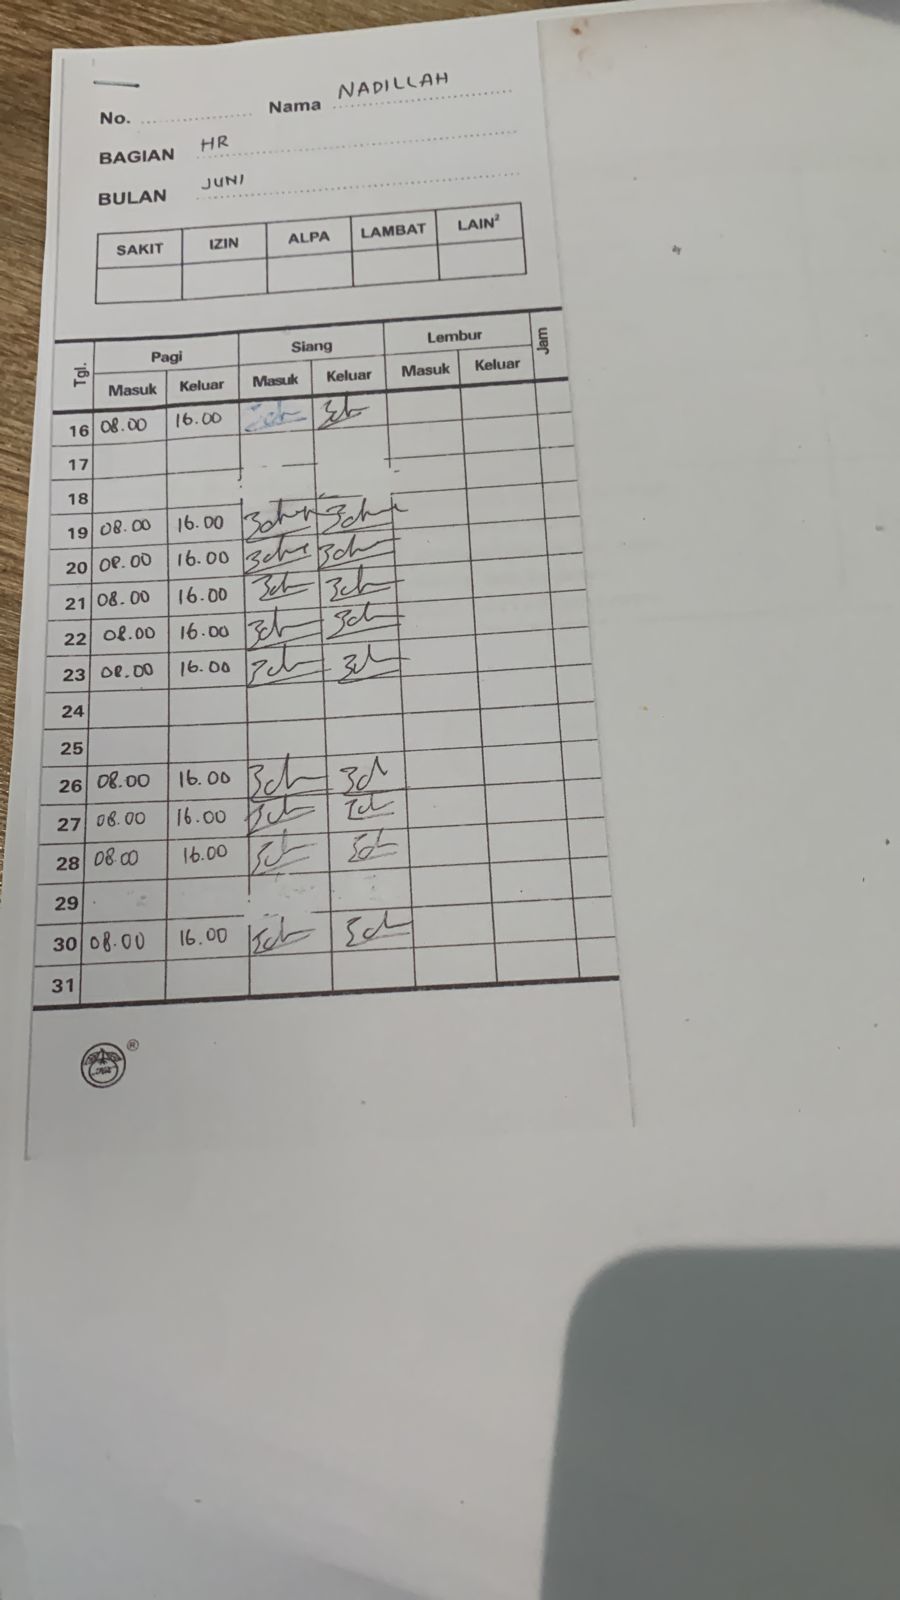 No. Nama NADILLAH
BAGIAN HR
BULAN JUNI
SAKIT IZIN ALPA LAMBAT LAIN²
Tgl. Pagi Siang Lembur Jam
Masuk Keluar Masuk Keluar Masuk Keluar
16 08.00 16.00
17
18
19 08.00 16.00
20 08.00 16.00
21 08.00 16.00
22 08.00 16.00
23 08.00 16.00
24
25
26 08.00 16.00
27 08.00 16.00
28 08.00 16.00
29
30 08.00 16.00
31
®